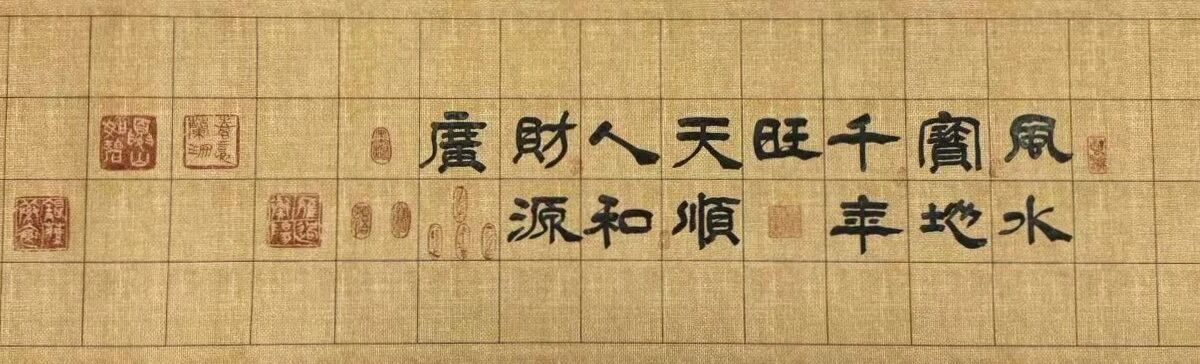 風水
寶地
千年
旺
天順
人和
財源
廣